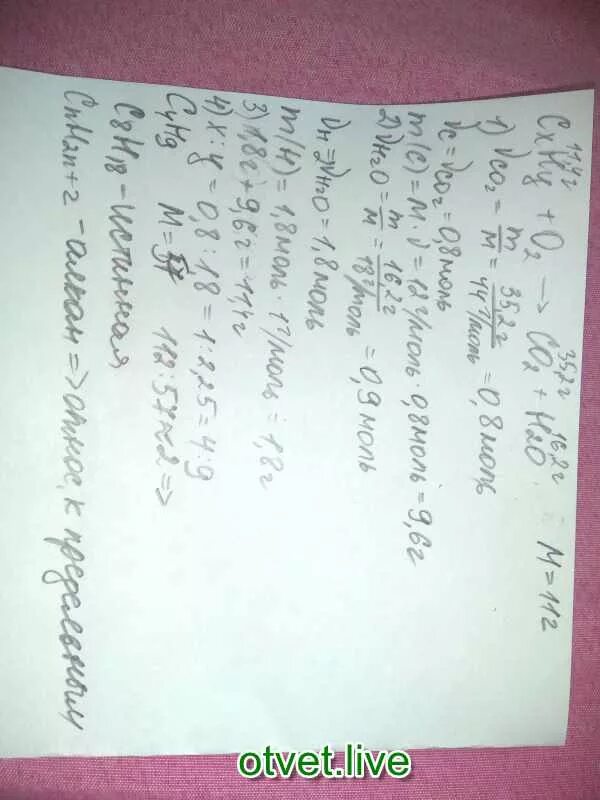 11,4г 35,2г 16,2г
CxHy + O2 → CO2 + H2O M=112
1) νCO2 = m/M = 35,2г/44г/моль = 0,8моль
νc = νCO2 = 0,8моль
m(C) = M·ν = 12г/моль·0,8моль = 9,6г
2) νH2O = m/M = 16,2г/18г/моль = 0,9моль
νH = 2νH2O = 1,8моль
m(H) = 1,8моль·1г/моль = 1,8г
3) 1,8г + 9,6г = 11,4г
4) x:y = 0,8:18 = 1:2,25 = 4:9
C4H9 M=57 112:57≈2 =>
C8H18 - истинная
CnH2n+2 - алкан => относ. к предельным
otvet.live